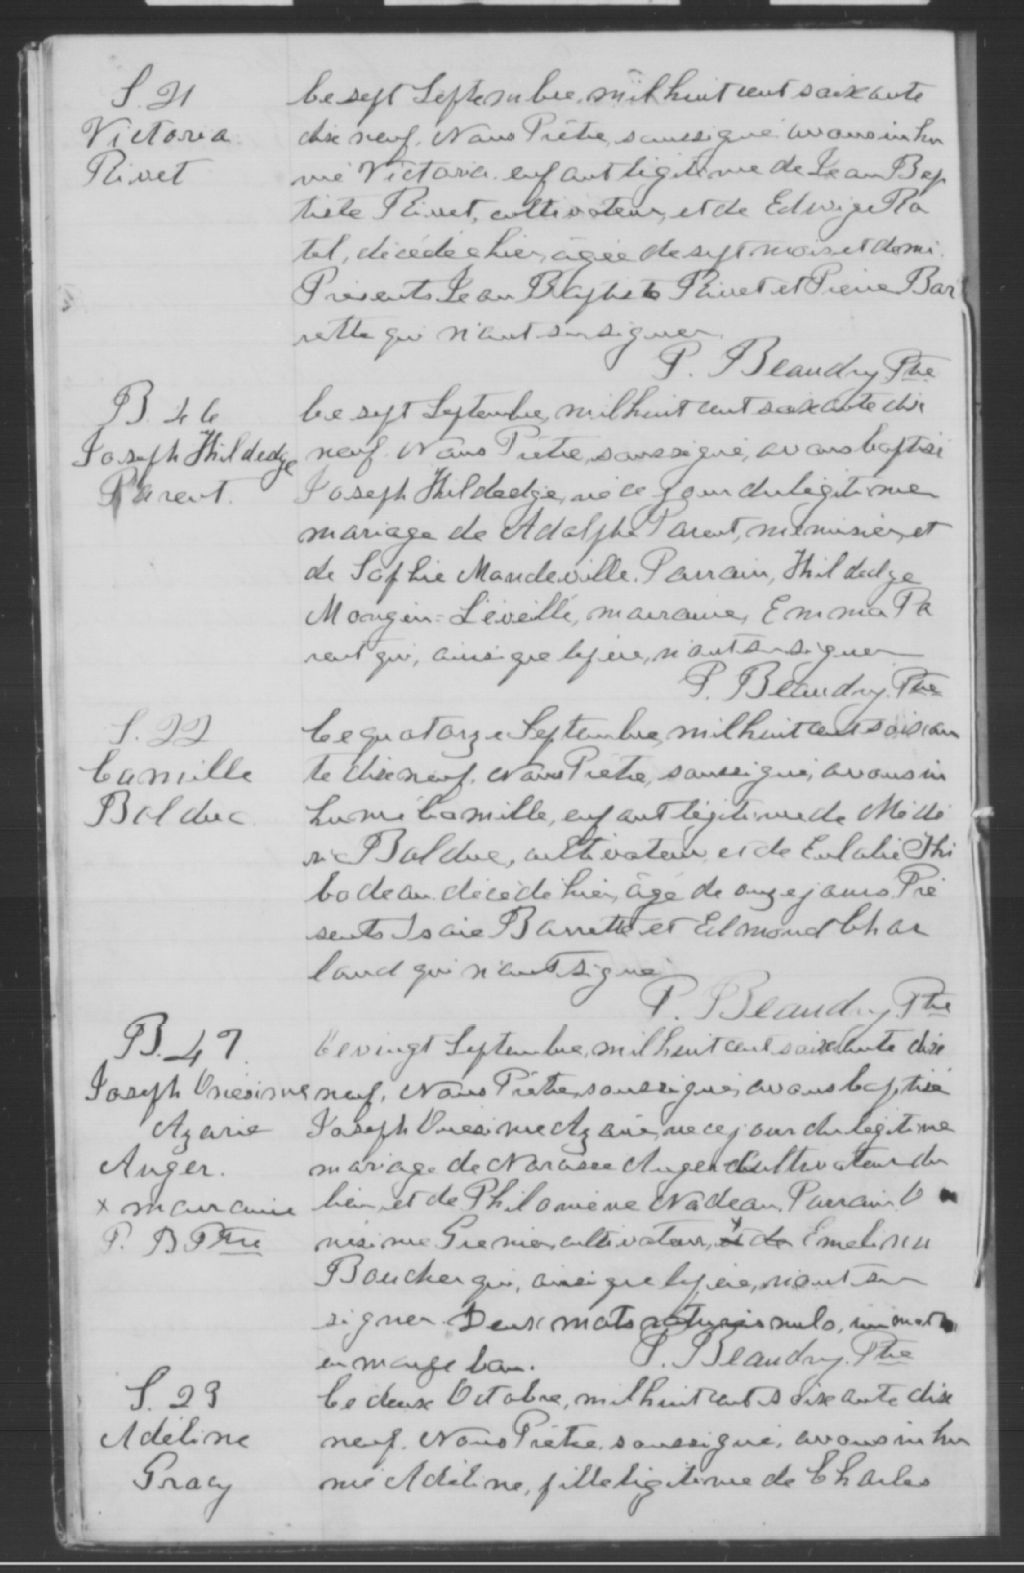 S. 21
Victoria
Rivet
Le sept Septembre, mil huit cent soixante
dix neuf, Nous Prêtre, soussigné avons inhu
mé Victoria enfant légitime de Jean Bap
tiste Rivet, cultivateur, et de Edwige Ra
tel, décédée hier, âgée de sept mois et demi.
Présents Jean Baptiste Rivet et Pierre Bar
rette qui n'ont su signer
P. Beaudry Ptre
B. 46
Joseph Hildedge
Parent.
Le sept Septembre, mil huit cent soixante dix
neuf. Nous Prêtre, soussigné, avons baptisé
Joseph Hildedge, né ce jour du légitime
mariage de Adolphe Parent, menuisier, et
de Sophie Mandeville. Parrain, Hildedge
Mongin-Léveillé, marraine, Emma Pa
rent qui, ainsi que le père, n'ont su signer
P. Beaudry. Ptre
S. 22
Camille
Bolduc
Le quatorze Septembre, mil huit cent soixan
te dix neuf. Nous Prêtre, soussigné, avons in
humé Camille, enfant légitime de Médé
ric Bolduc, cultivateur, et de Eulalie Thi
bodeau décédé hier, âgé de onze jours Pré
sents Isaie Barrette et Edmond Char
land qui n'ont signé
P. Beaudry. Ptre
B. 47
Joseph Onésime
Azarie
Anger.
x marraine
P. B Ptre
Le vingt Septembre, mil huit cent soixante dix
neuf. Nous Prêtre, soussigné, avons baptisé
Joseph Onésime Azarie, né ce jour du légitime
mariage de Narcisse Anger Cultivateur du
lieu, et de Philomène Nadeau, Parrain O
nésime Grenier, cultivateur, x et de Emelina
Boucher qui, ainsi que le père, n'ont su
signer Deux mots raturés nuls, un mot
en marge bon.
P. Beaudry. Ptre
S. 23
Adéline
Gracy
Le deux Octobre, mil huit cent soixante dix
neuf. Nous Prêtre soussigné, avons inhu
mé Adéline, fille légitime de Charles